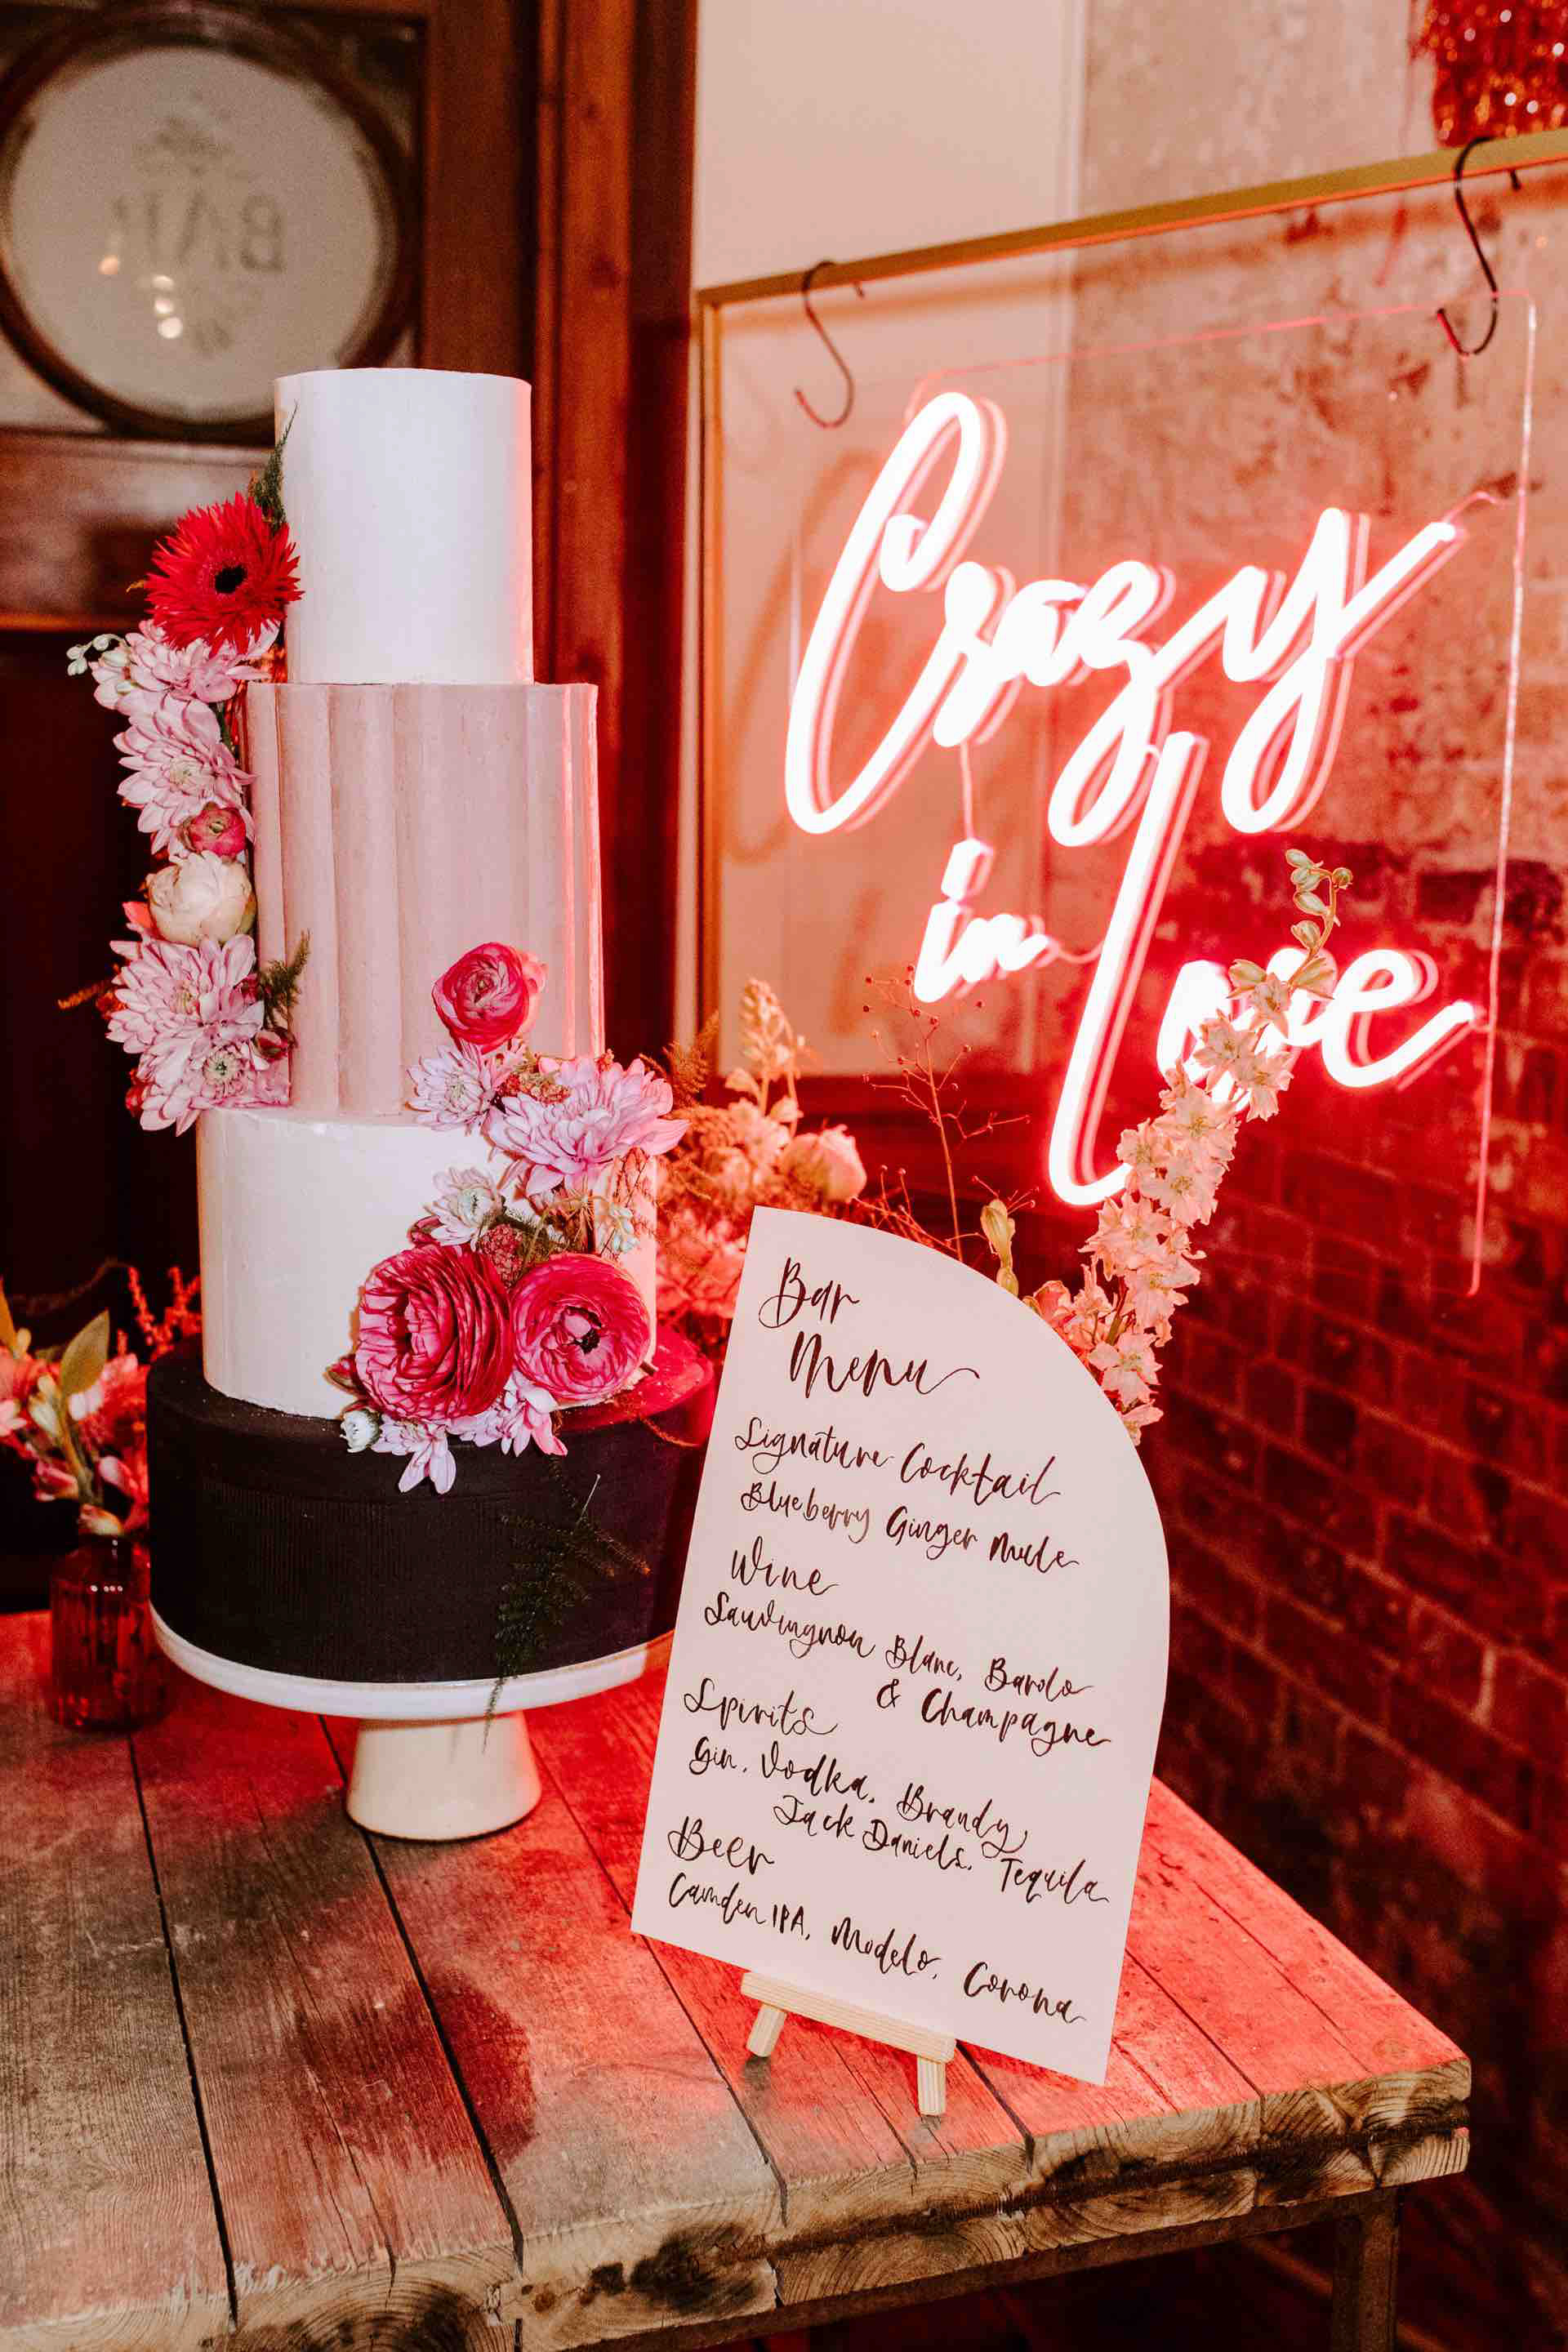 Crazy
in
love
Bar
Menu
Signature Cocktail
Blueberry Ginger Mule
Wine
Sauvingnon Blanc, Barolo
& Champagne
Spirits
Gin, Vodka, Brandy,
Jack Daniels, Tequila
Beer
Camden IPA, Modelo, Corona